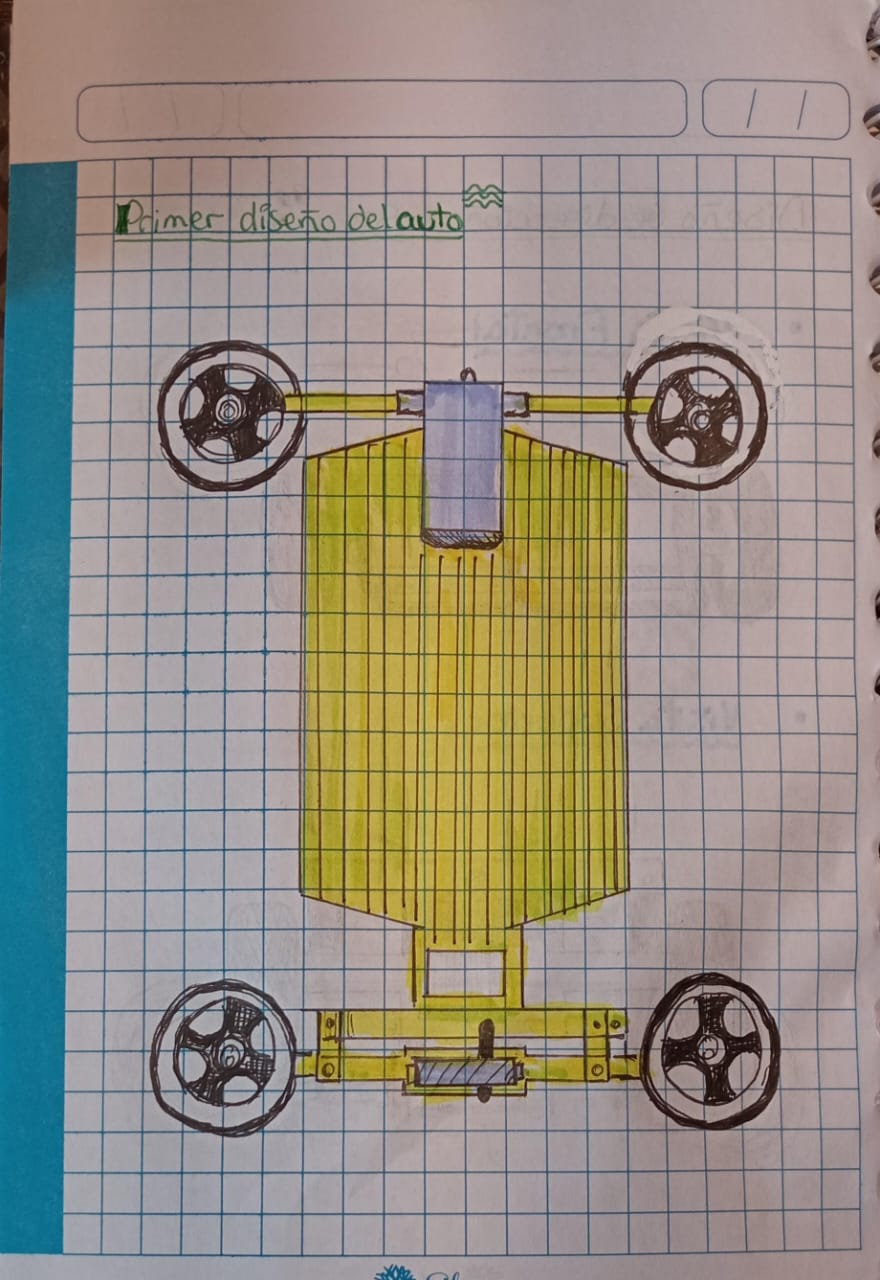 Primer diseño del auto
/ /